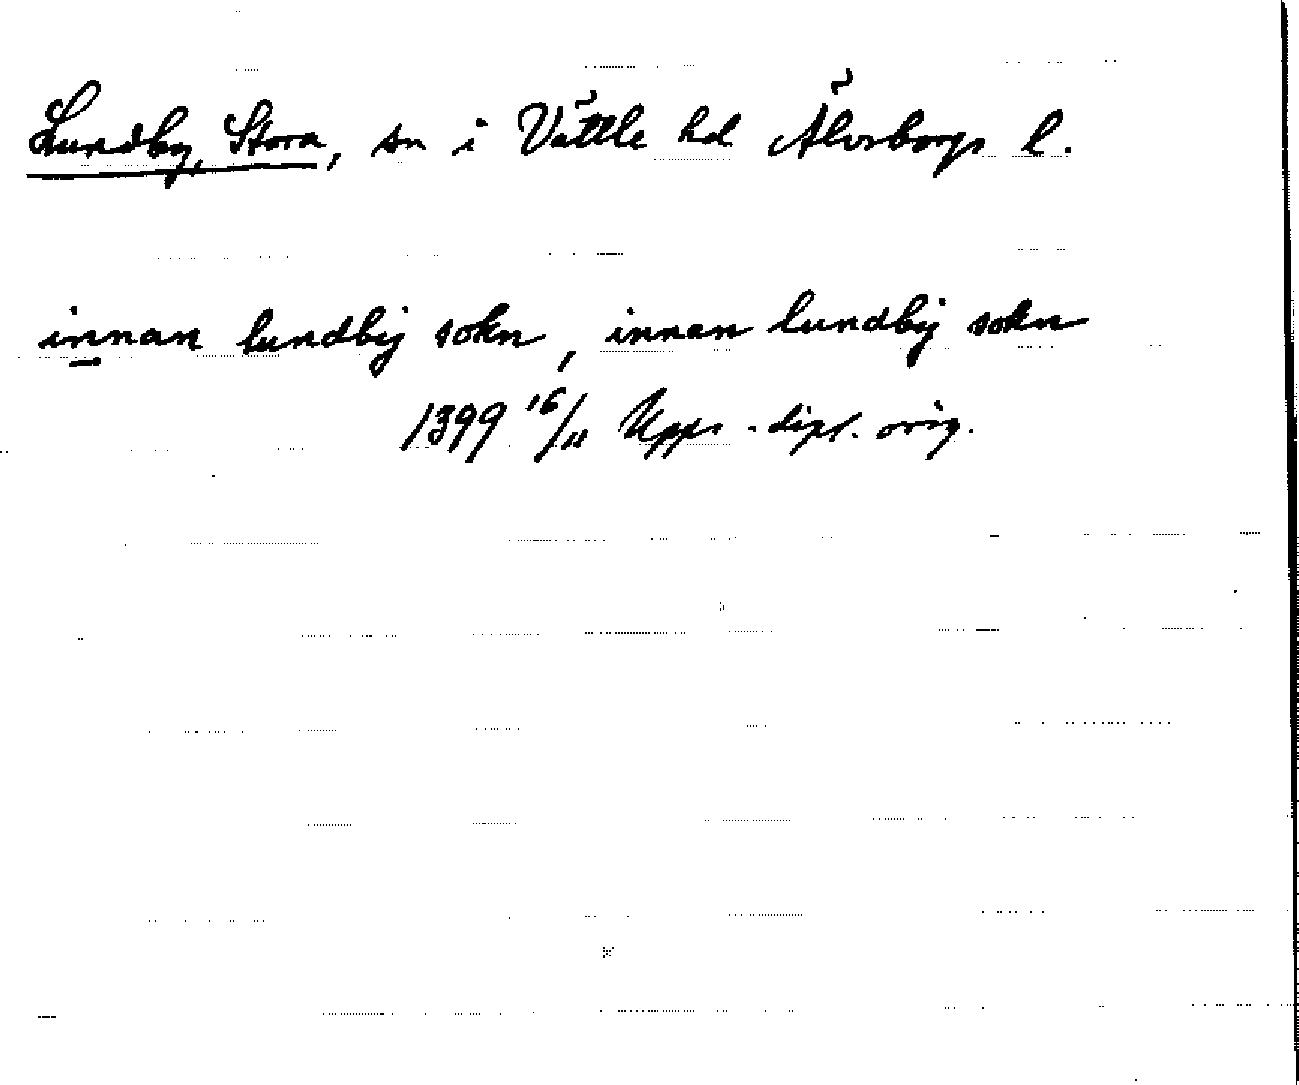 Lundby, Stora, sn i Vättle hd Älvsborgs l.
innan lundbij sokn, innan lundbij sokn
1399 16/11 Upps. dipl. orig.